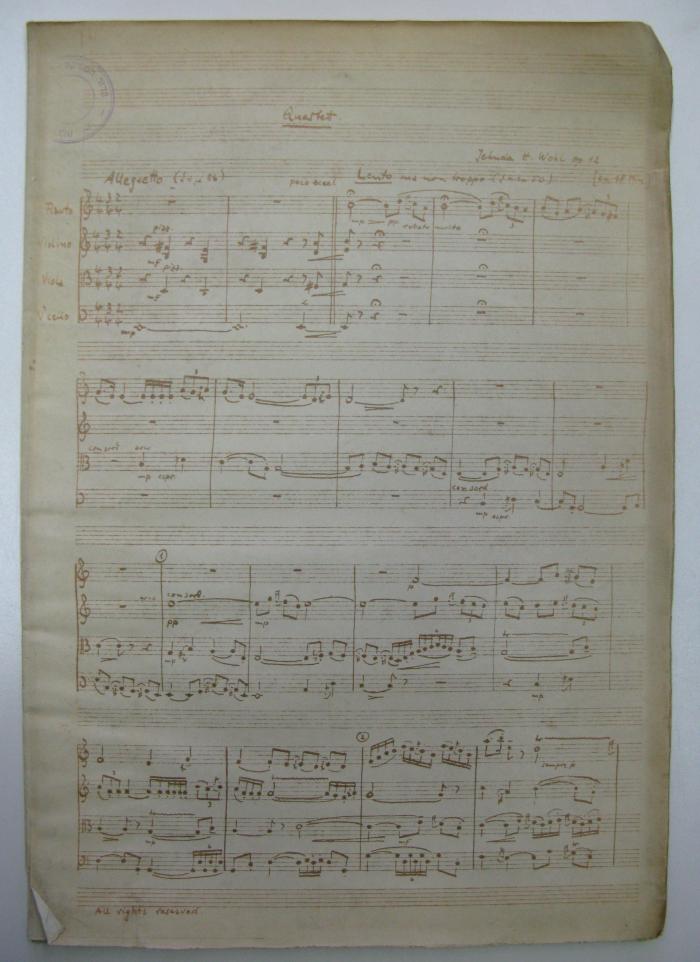 Quartet
Jehuda H. Wohl op 12
Allegretto
poco accel
Lento ma non troppo
Flauto
Violino
Viola
V'cello
mp pp rubato molto
pizz
mf
pizz
mf
mp
3
3
3
con sord arco
mp espr.
con sord
mp espr.
1
p
arco con sord.
pp mp
mp
mp
2
sempre p
3
mp mf
All rights reserved